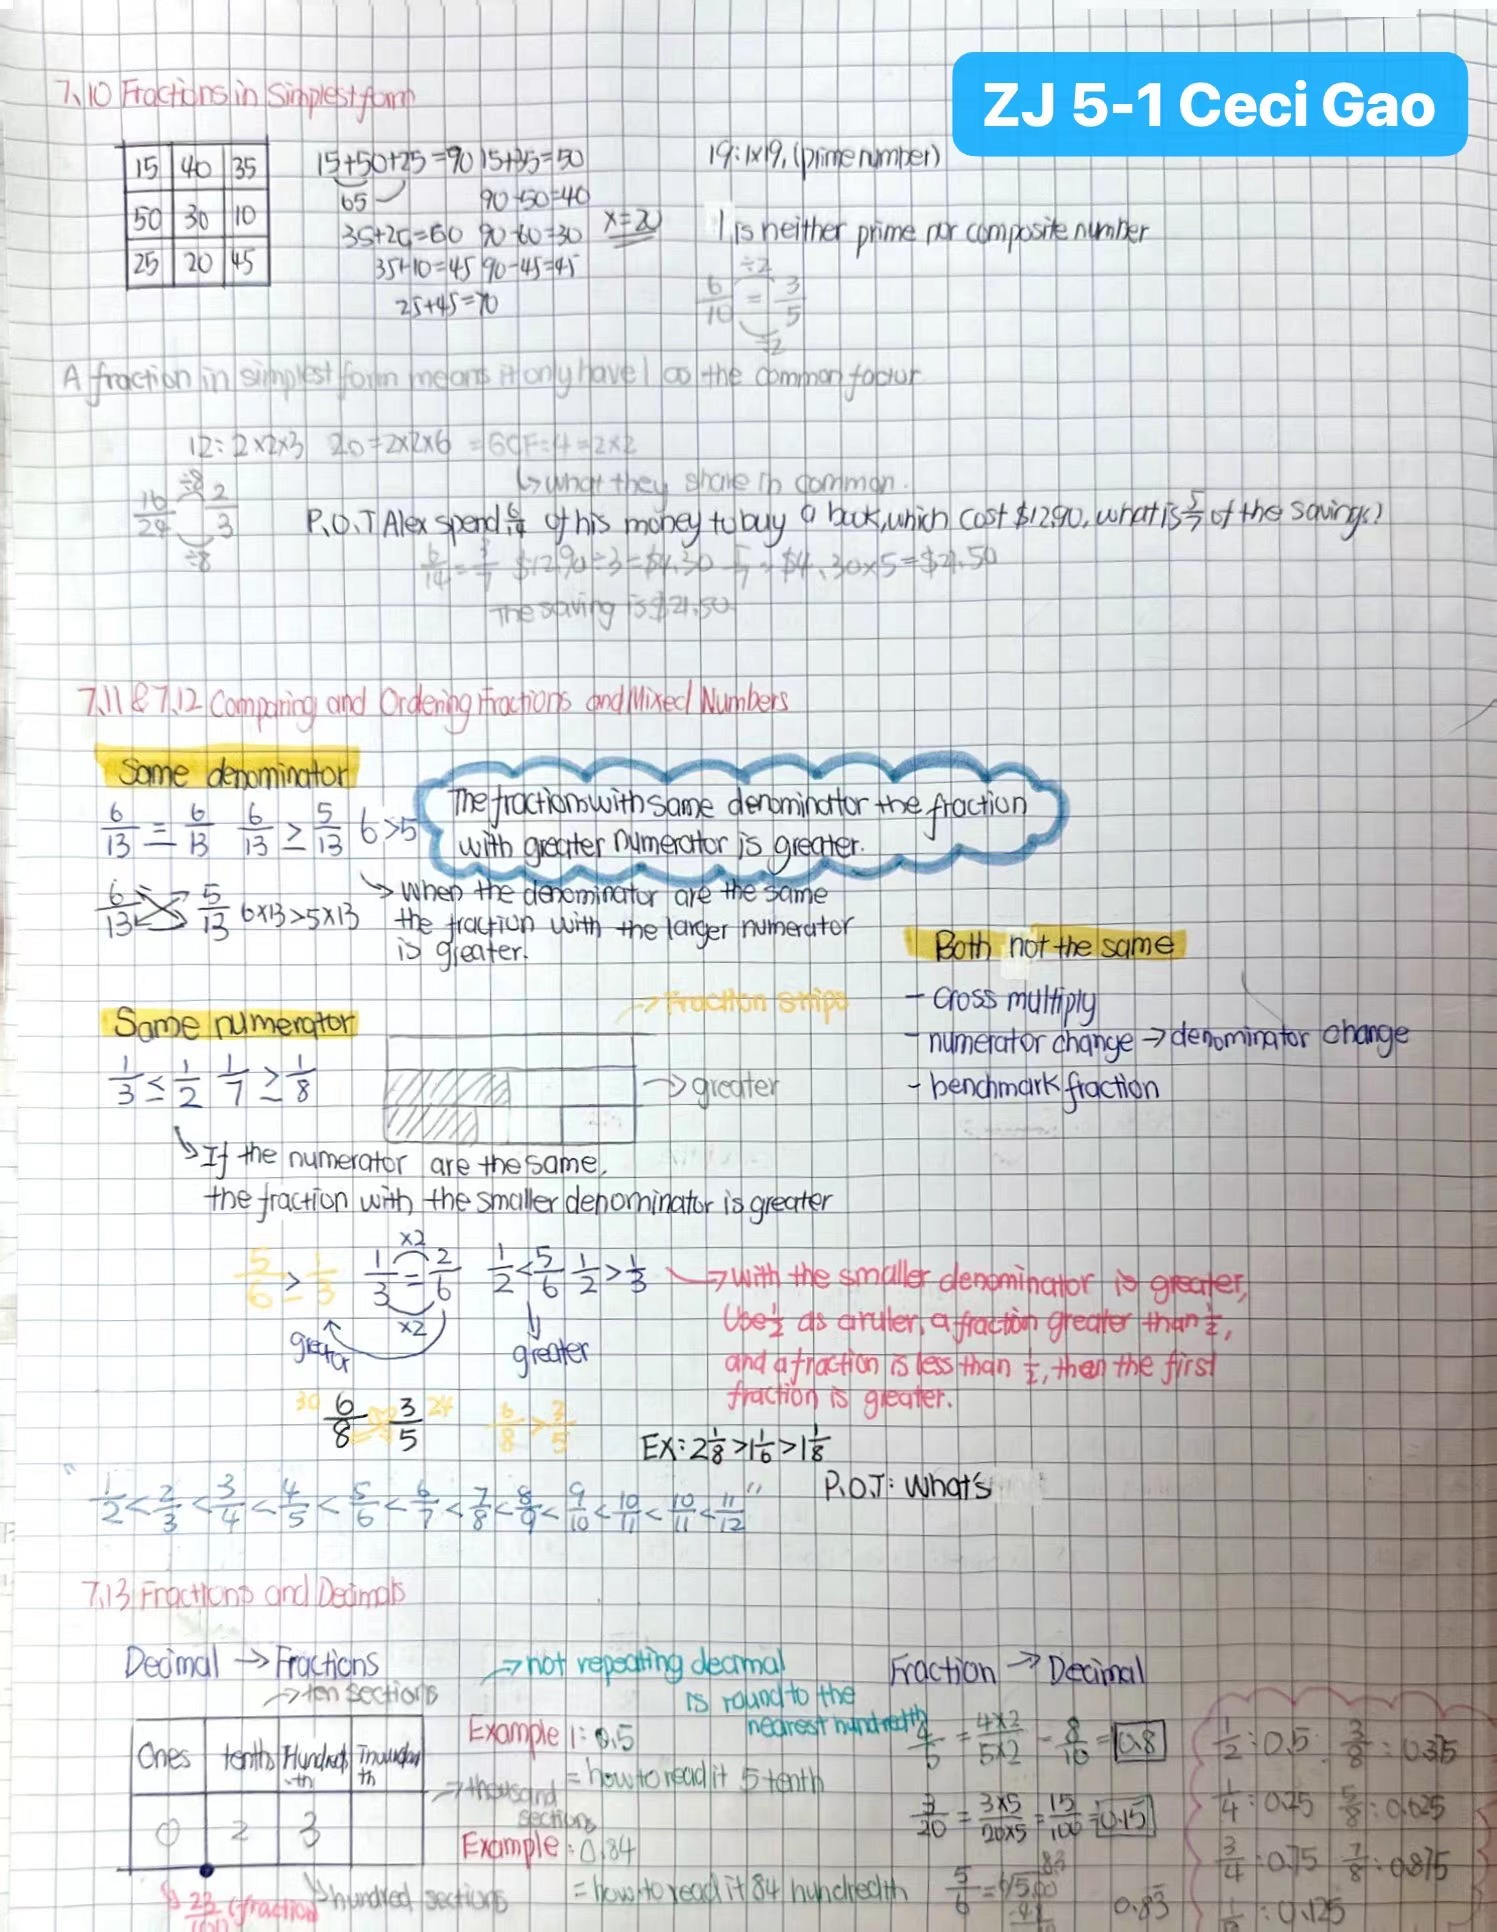 ZJ 5-1 Ceci Gao
7.10 Fractions in Simplest form
15 40 35
50 30 10
25 20 45
15+50+25=90 15+35=50
65 90-50=40
35+25=60 90-60=30 x=20
35+10=45 90-45=45
25+45=70
19:1x19, (prime number)
1 is neither prime nor composite number
÷2
6/10 = 3/5
÷2
A fraction in simplest form means it only have 1 as the common factor
12: 2x2x3 20=2x2x6 =GCF=4=2x2
↳ what they share in common.
÷8
16/24 2/3
÷8
P.O.T Alex spend 6/14 of his money to buy a book, which cost $12.90, what is 5/7 of the savings?
6/14=3/7 $12.90÷3=$4.30 5/7 $4.30x5=$21.50
The saving is $21.50
7.11 & 7.12 Comparing and Ordering Fractions and Mixed Numbers
Same denominator
6/13 = 6/13 6/13 ≥ 5/13 6>5
The fractions with same denominator the fraction
with greater numerator is greater.
6/13 5/13 6x13>5x13
↳ When the denominator are the same
the fraction with the larger numerator
is greater.
Both not the same
- cross multiply
- numerator change → denominator change
- benchmark fraction
Same numerator
1/3 ≤ 1/2 1/7 ≥ 1/8
→ Fraction strips
→ greater
↳ If the numerator are the same,
the fraction with the smaller denominator is greater
5/6 > 1/3
x2
1/3 = 2/6
x2
1/2 < 5/6 1/2 > 1/3
greater
greater
→ with the smaller denominator is greater,
Use 1/2 as a ruler, a fraction greater than 1/2,
and a fraction is less than 1/2, then the first
fraction is greater.
30 6/8 3/5 24 6/8 > 3/5
EX: 2 1/8 > 1 1/6 > 1 1/8
P.O.T: What's
"1/2 < 2/3 < 3/4 < 4/5 < 5/6 < 6/7 < 7/8 < 8/9 < 9/10 < 10/11 < 10/11 < 11/12"
7.13 Fractions and Decimals
Decimal → Fractions
→ ten sections
Ones tenth Hundredth
0 2 3
→ thousand
sections
↳ hundred sections
23/100 (fraction
→ not repeating decimal
is round to the
nearest hundredth
Example 1: 0.5
= how to read it 5 tenth
Example: 0.84
= how to read it 84 hundredth
Fraction → Decimal
4/5 = 4x2/5x2 = 8/10 = 0.8
3/20 = 3x5/20x5 = 15/100 = 0.15
5/6 = 6√5.00 0.83
1/2: 0.5 3/8: 0.375
1/4: 0.25 5/8: 0.625
3/4: 0.75 7/8: 0.875
: 0.125